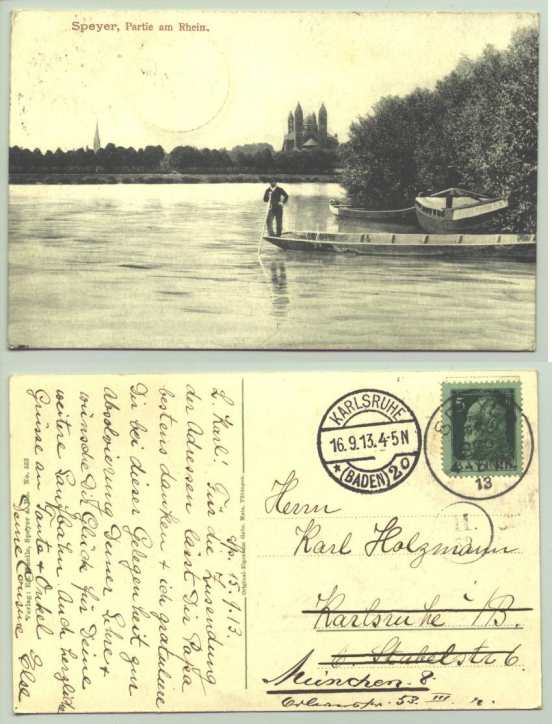 Speyer, Partie am Rhein.
Sp. 15./9.13.
L. Karl! Für die Zusendung
der Adressen lässt Dir Papa
bestens danken & ich gratuliere
Dir bei dieser Gelegenheit zur
Absolvierung Deiner Lehre &
wünsche Dir Glück für Deine
weitere Laufbahn. Auch herzliche
Grüsse an Tante & Onkel
Deine Cousine Else.
KARLSRUHE
16.9.13.4-5N
(BADEN) 20
5
BAYERN
13
Herrn
Karl Holzmann
Karlsruhe i/B.
München. 8.
53. III